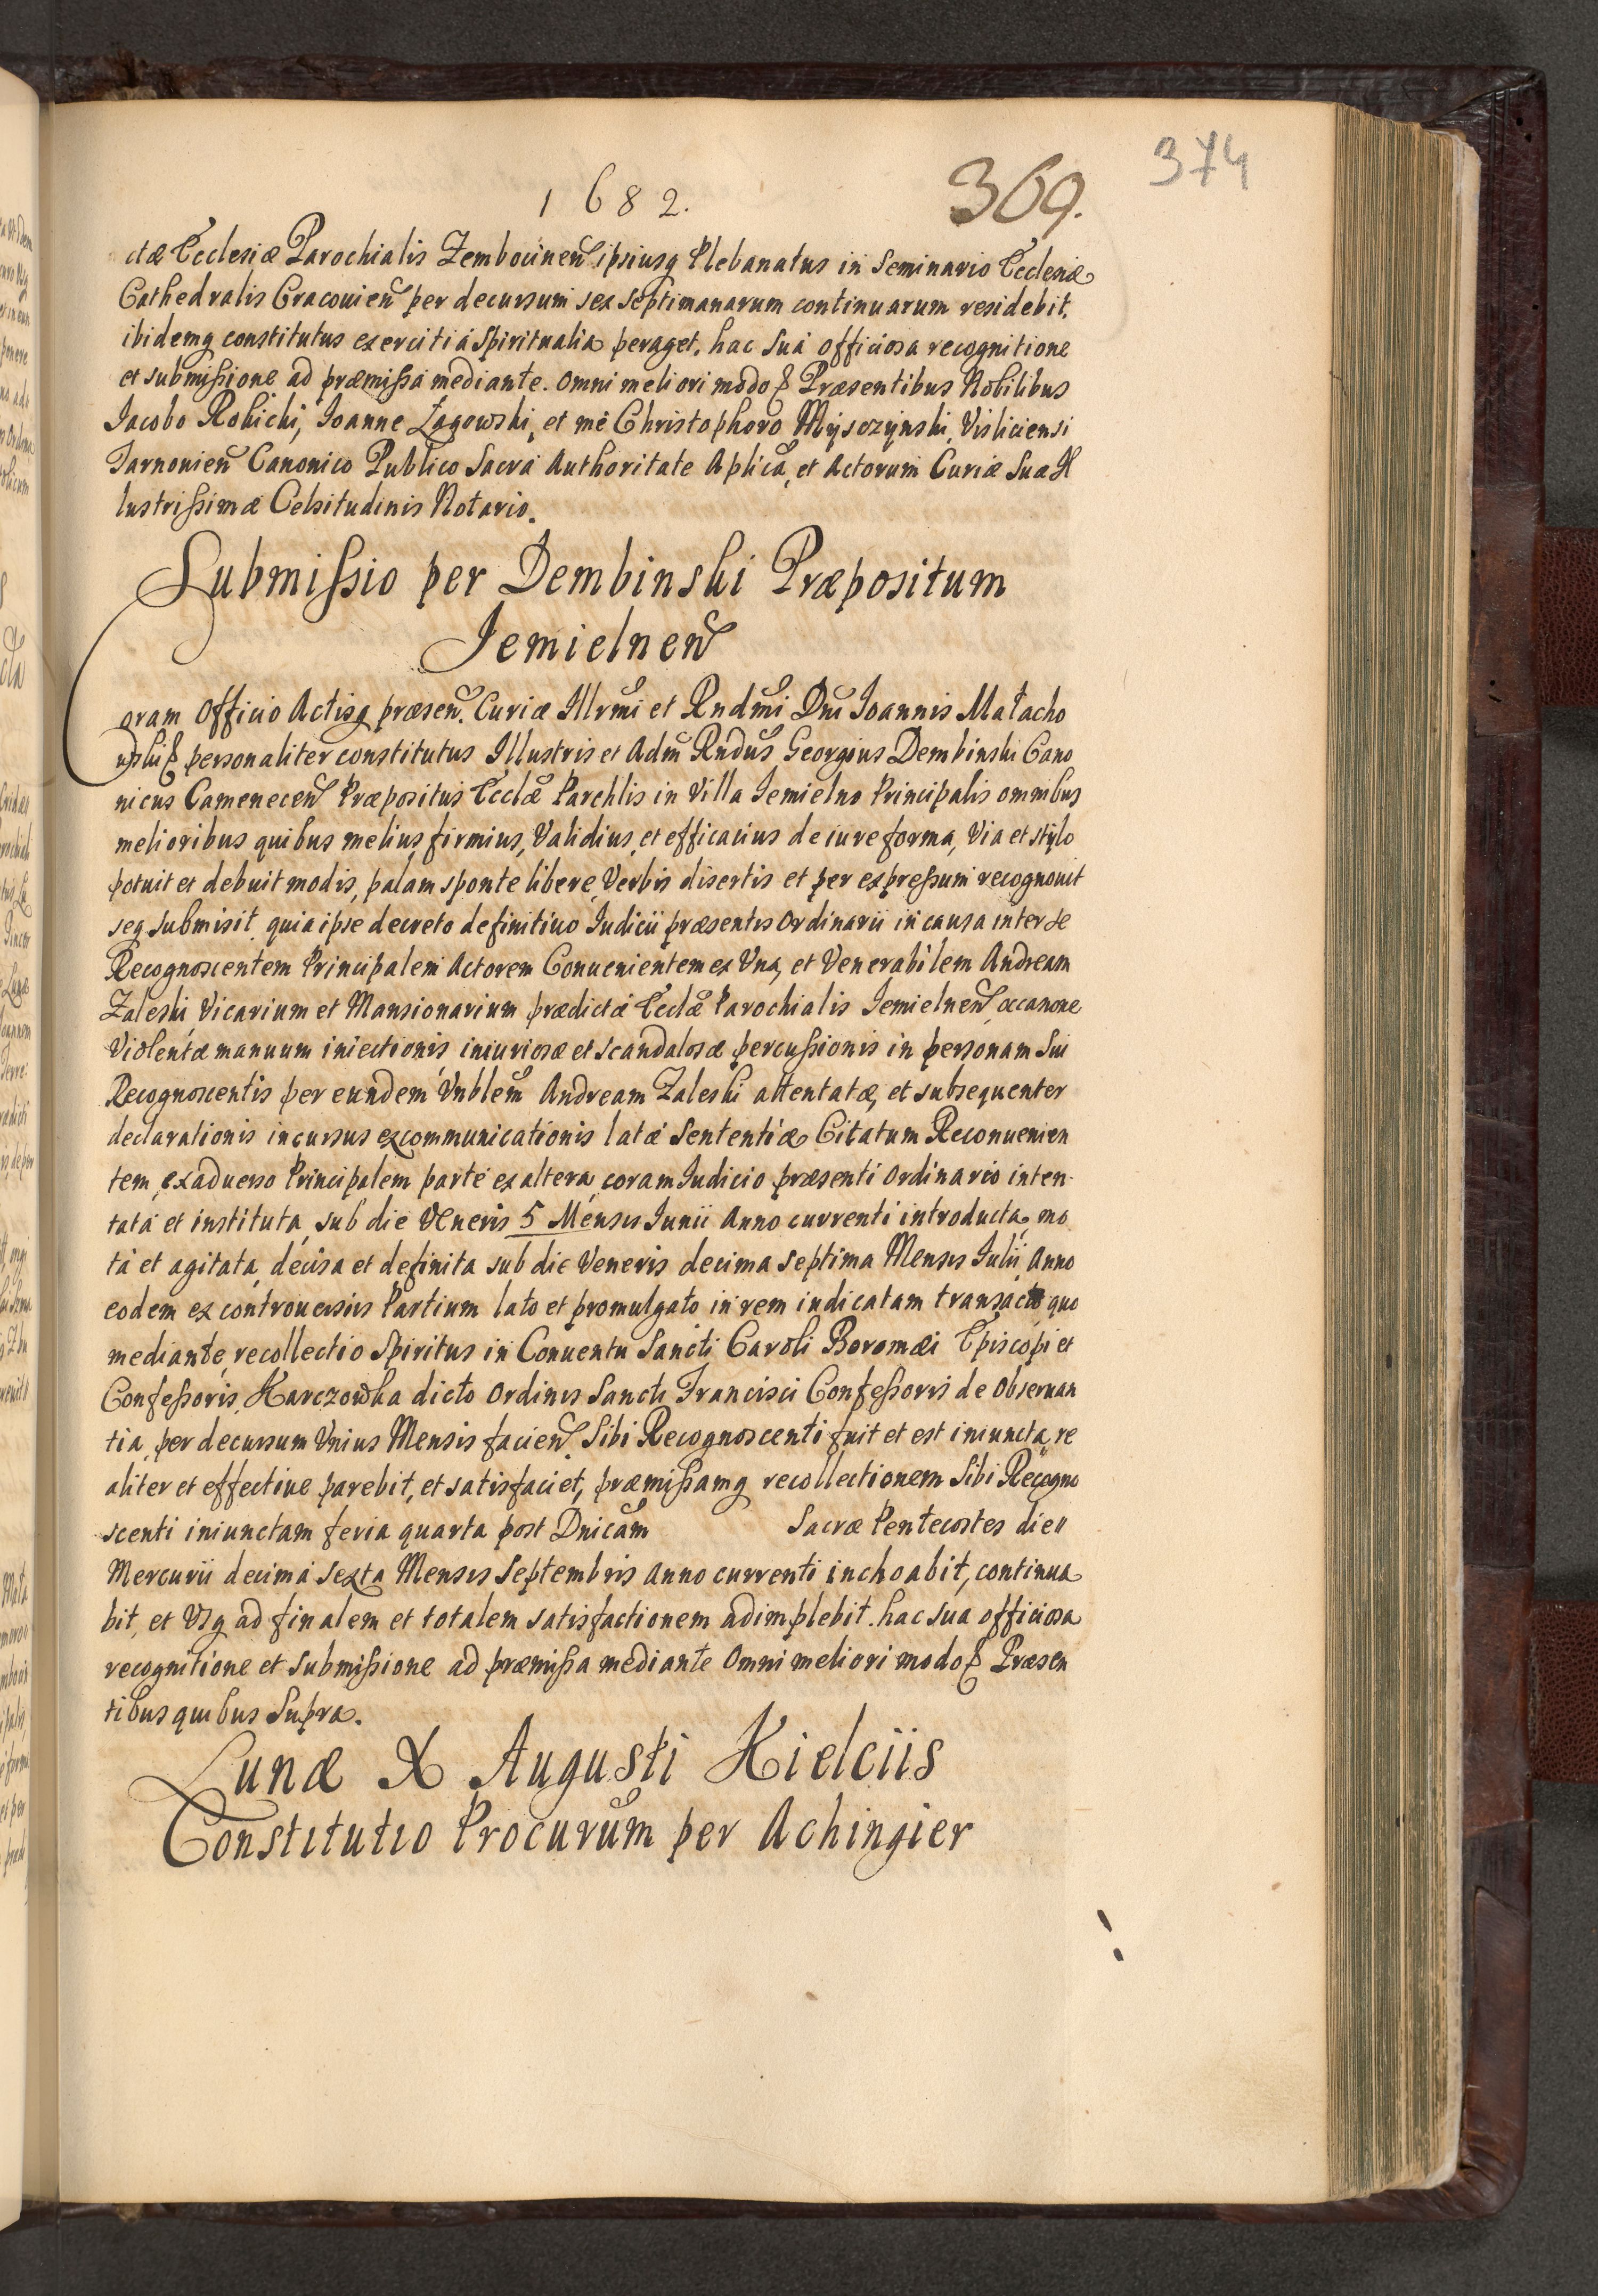 374
1682.
369.
ctæ Ecclesiæ Parochialis Zembocinen̄ ipsiusq Plebanatus in Seminario Ecclesiæ
Cathedralis Cracouien̄ per decursum sex septimanarum continuarum residebit,
ibidemq constitutus exercitia Spiritualia peraget, hac sua officiosa recognitione
et submißione ad præmißa mediante. Omni meliori modo & Præsentibus Nobilibus
Jacobo Rokicki, Joanne Łagowski, et me Christophoro Mysczynski, Visliciensi
Tarnonien̄ Canonico Publico Sacra Authoritate Aplica, et Actorum Curiæ Suæ Il
lustrißimæ Celsitudinis Notario.
Submißio per Dembinski Præpositum
Jemielnen̄
Coram Officio Actisq præsen̄. Curiæ Illrmi et Rndmi Dni Joannis Małacho
wski & personaliter constitutus Illustris et Adm̄ Rndus Georgius Dembinski Cano
nicus Camenecen̄ Præpositus Eccłæ Parchlis in Villa Jemielno Principalis omnibus
melioribus quibus melius, firmius, Validius, et efficacius de iure forma, Via et stylo
potuit et debuit modis, palam sponte libere, Verbis disertis et per expreßum recognouit
seq submisit, quia ipse decreto definitiuo Iudicii præsentis Ordinarii in causa inter se
Recognoscentem Principalem Actorem Conuenientem ex Vna, et Venerabilem Andream
Zaleski Vicarium et Mansionarium prædictæ Eccłæ Parochialis Jemielnen̄, occasione
Violentæ manuum iniectionis iniuriosæ et scandalosæ percußionis in personam Sui
Recognoscentis per eundem Vnblem Andream Zaleski attentatæ, et subsequenter
declarationis incursus excommunicationis latæ Sententiæ Citatum Reconuenien
tem, ex aduerso Principalem parte ex altera, coram Iudicio præsenti Ordinario inten
tata et instituta, sub die Veneris 5 Mensis Iunii Anno currenti introducta, mo
ta et agitata, decisa et definita sub die Veneris decima septima Mensis Iulii, Anno
eodem ex controuersiis Partium lato et promulgato in rem iudicatam transacto quo
mediante, recollectio Spiritus in Conuentu Sancti Caroli Boromæi Episcopi et
Confeßoris, Karczowka dicto Ordinis Sancti Francisci Confeßoris de Obseruan
tia, per decursum Vnius Mensis facien̄ Sibi Recognoscenti fuit et est iniuncta, re
aliter et effectiue parebit, et satisfaciet, præmißamq recollectionem Sibi Recogno
scenti iniunctam feria quarta post Dnicam Sacræ Pentecostes die
Mercurii decima sexta Mensis Septembris Anno currenti inchoabit, continua
bit, et Vsq ad finalem et totalem satisfactionem adimplebit. hac sua officiosa
recognitione et submißione ad præmißa mediante Omni meliori modo & Præsen
tibus quibus Supra.
Lunæ X Augusti Kielciis
Constitutio Procurum per Achingier